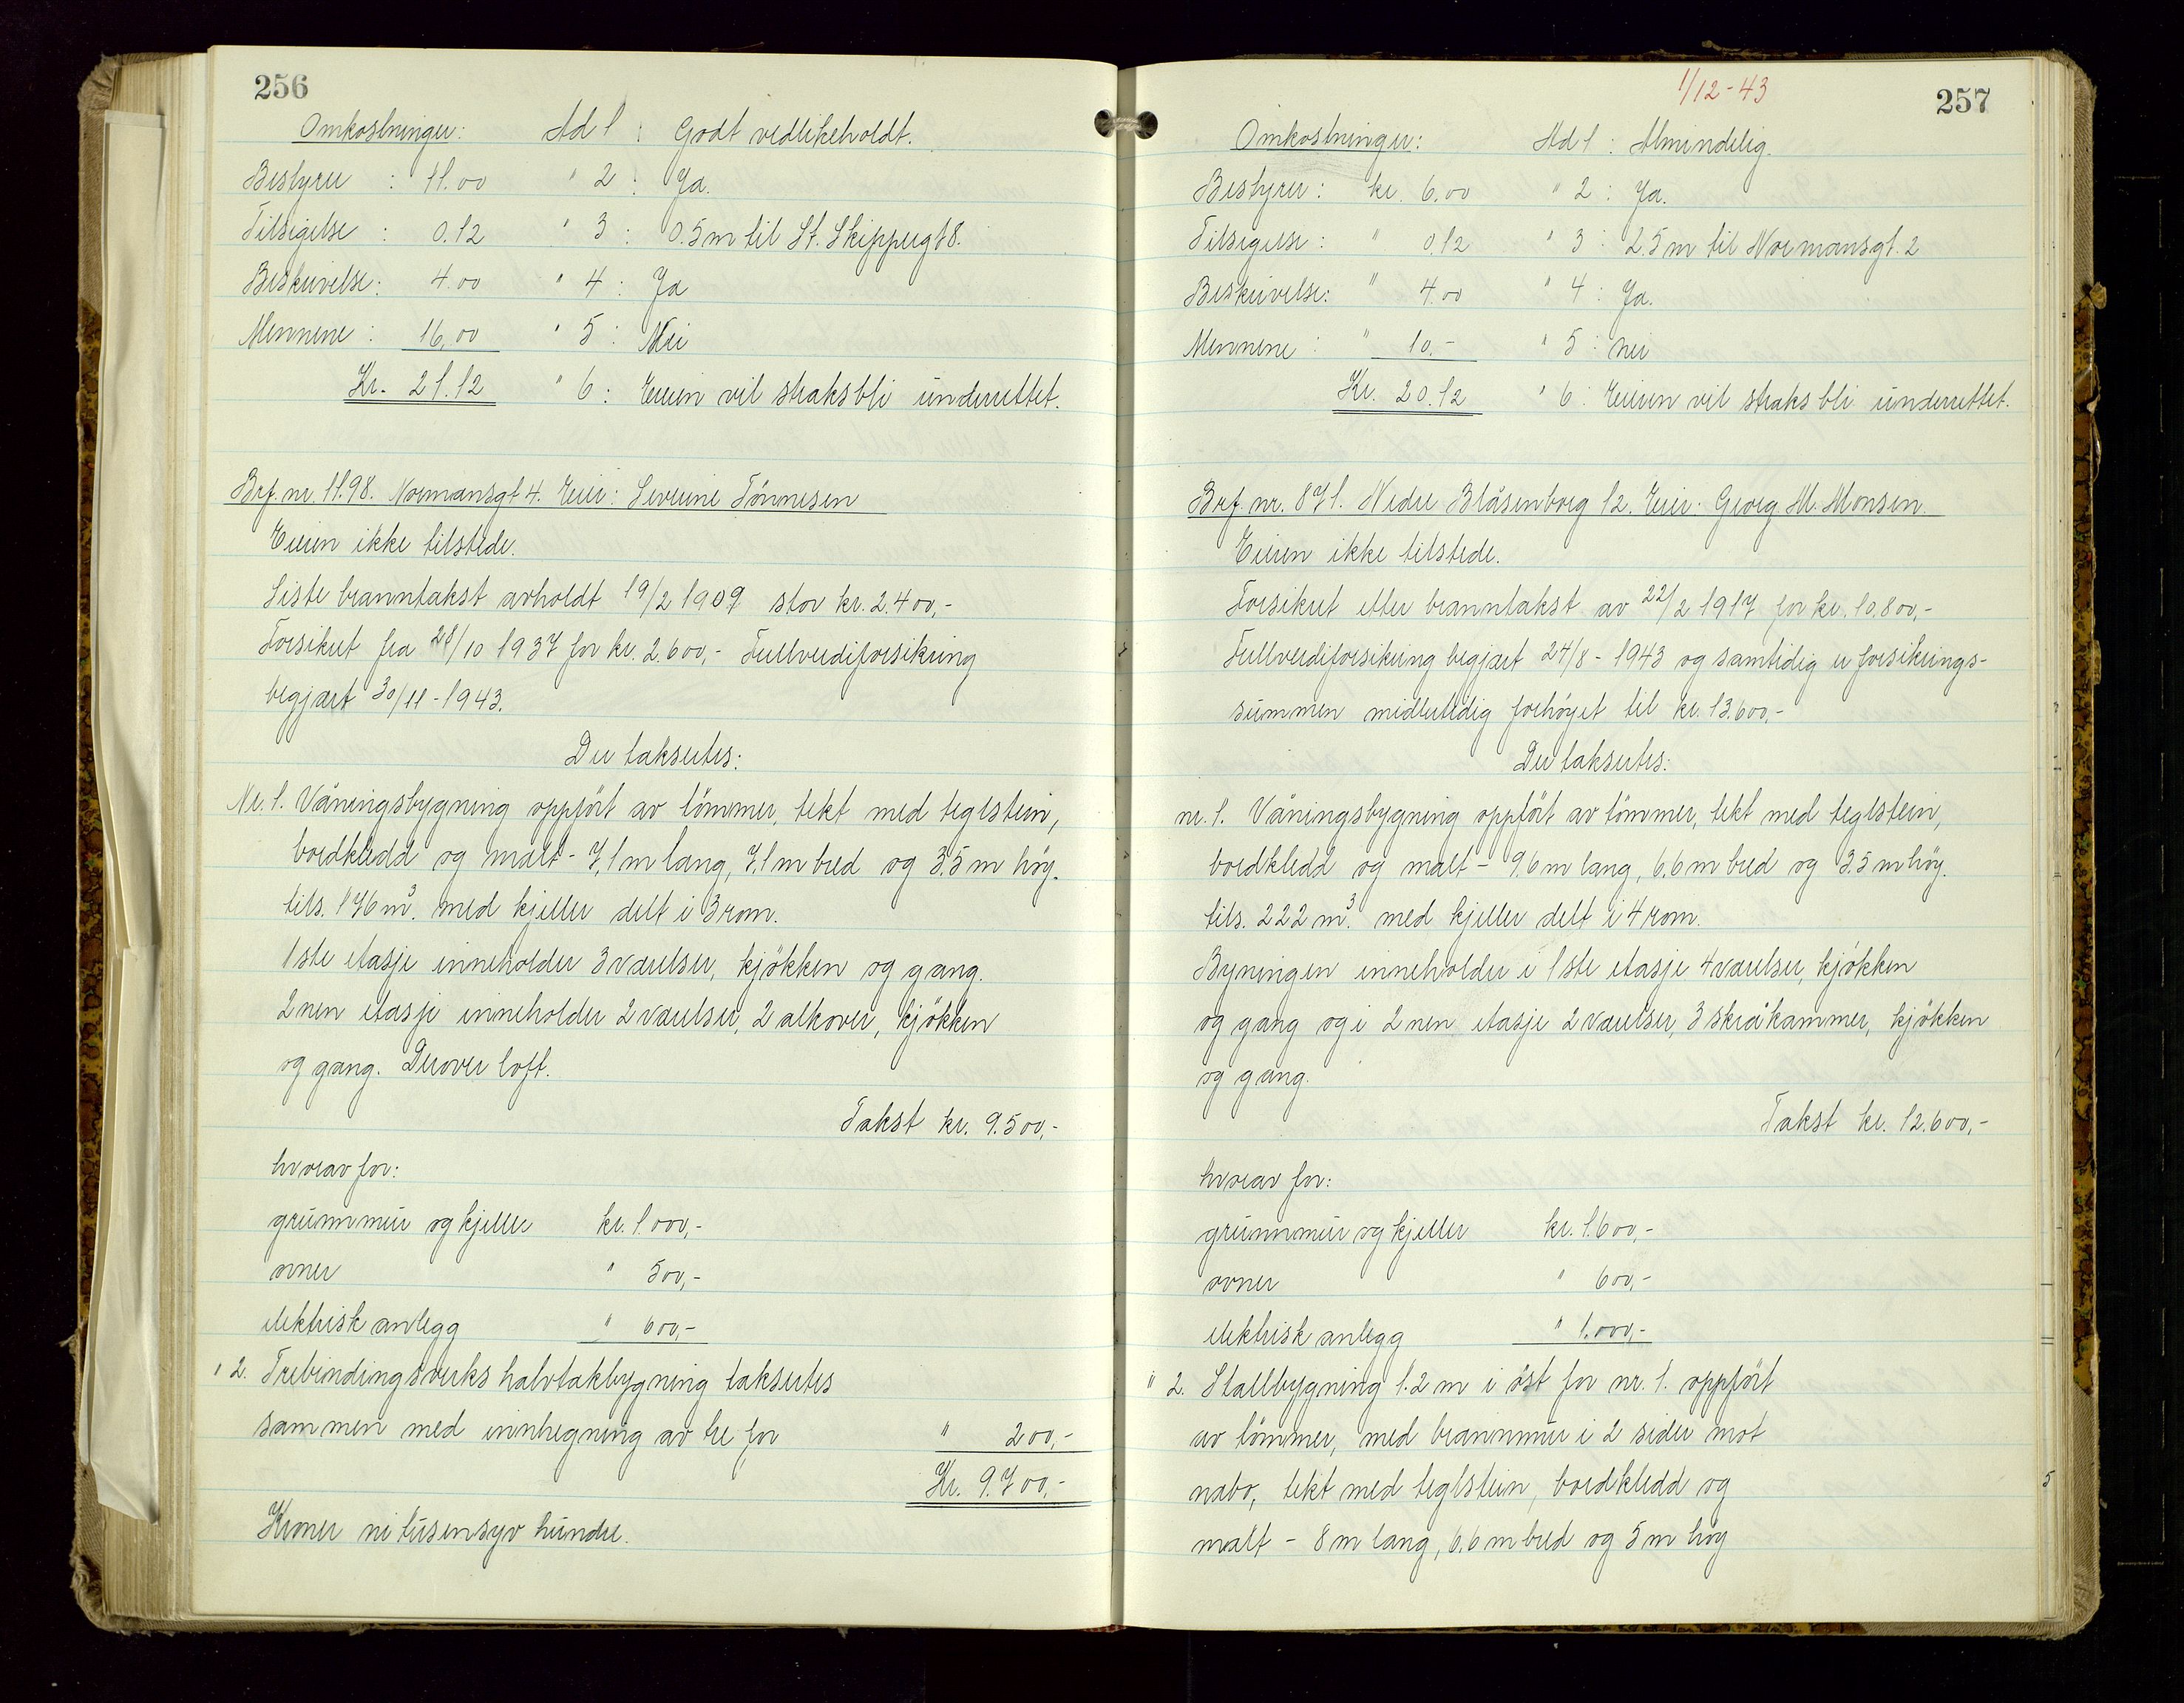 256
Omkostninger: Ad 1 : Godt vedlikeholdt.
Bestyrer : 11.00 " 2 : Ja.
Tilsigelse : 0.12 " 3 : 0.5 m til St. Skippergt 8.
Beskrivelse: 4.00 " 4 : Ja
Mennene : 16,00 " 5 : Nei
Kr. 21.12 " 6 : Eieren vil straks bli underrettet.
Brf. nr. 11.98. Normansgt 4. Eier: Severine Tönnesen
Eieren ikke tilstede.
Siste branntakst avholdt 19/2 1909 stor kr. 2.400,-
Forsikret fra 28/10 1937 for kr. 2.600,- Fullverdiforsikring
begjært 30/11-1943.
Der takseres:
Nr. 1. Våningsbygning oppfört av tömmer, tekt med teglstein,
bordkledd og malt - 7,1 m lang, 7,1 m bred og 3.5 m höy.
tils. 176 m³. med kjeller delt i 3 rom.
1ste etasje inneholder 3 værelser, kjökken og gang.
2nen etasje inneholder 2 værelser, 2 alkover, kjökken
og gang. Derover loft.
Takst kr. 9.500,-
hvorav for:
grunnmur og kjeller kr. 1.000,-
ovner " 500,-
elektrisk anlegg " 600,-
" 2. Trebindingsverks halvtakbygning takseres
sammen med innhegning av tre for " 200,-
Kr. 9.700,-
Kroner ni tusen syv hundre.
1/12-43
257
Omkostninger: Ad 1 : Almindelig.
Bestyrer : kr. 6,00 " 2 : Ja.
Tilsigelse : " 0.12 " 3 : 2.5 m til Normansgt. 2
Beskrivelse: " 4.00 " 4 : Ja.
Mennene : " 10.- " 5 : nei
Kr. 20.12 " 6 : Eieren vil straks bli underrettet.
Brf. nr. 871. Nedre Blåsenborg 12. Eier: Georg M. Monsen.
Eieren ikke tilstede.
Forsikret etter branntakst av 22/2 1917 for kr. 10.800,-
Fullverdiforsikring begjært 24/8-1943 og samtidig er forsikrings-
summen midlertidig forhöyet til kr. 13.600,-
Der takseres:
nr. 1. Våningsbygning oppfört av tömmer, tekt med teglstein,
bordkledd og malt - 9.6 m lang, 6.6 m bred og 3.5 m höy.
tils. 222 m³. med kjeller delt i 4 rom.
Byningen inneholder i 1ste etasje 4 værelser, kjökken
og gang og i 2nen etasje 2 værelser, 3 skråkammer, kjökken
og gang.
Takst kr. 12.600,-
hvorav for:
grunnmur og kjeller kr. 1.600,-
ovner " 600,-
elektrisk anlegg " 1.000,-
" 2. Stallbygning 1.2 m i öst for nr. 1. oppfört
av tömmer, med brannmur i 2 sider mot
nabo, tekt med teglstein, bordkledd og
malt - 8 m lang, 6,6 m bred og 5 m höy